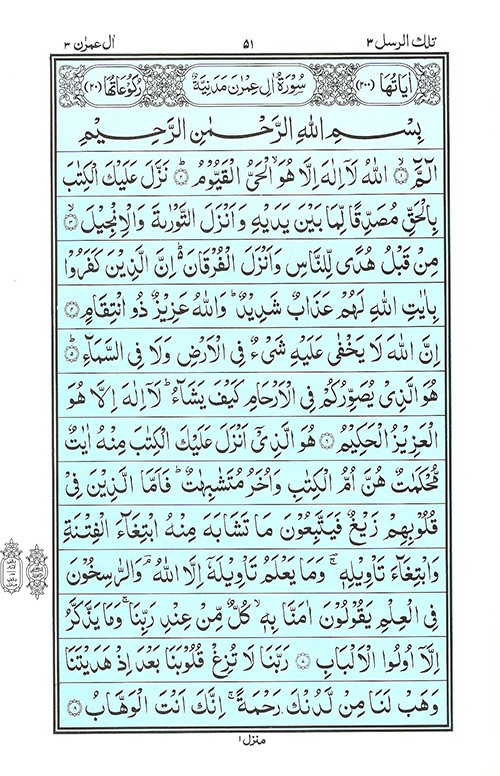 تلك الرسل ٣ ٥١ اٰل عمرٰن ٣
اٰيَاتُهَا (٢٠٠) سُوْرَةُ اٰلِ عِمْرٰنَ مَدَنِيَّةٌ رُكُوْعَاتُهَا (٢٠)
بِسْمِ اللّٰهِ الرَّحْمٰنِ الرَّحِيْمِ
الٓمّٓ ۙ﴿١﴾ اللّٰهُ لَاۤ اِلٰهَ اِلَّا هُوَ ۙ الْحَىُّ الْقَيُّوْمُ ؕ﴿٢﴾ نَزَّلَ عَلَيْكَ الْكِتٰبَ
بِالْحَقِّ مُصَدِّقًا لِّمَا بَيْنَ يَدَيْهِ وَاَنْزَلَ التَّوْرٰىةَ وَالْاِنْجِيْلَ ۙ﴿٣﴾
مِنْ قَبْلُ هُدًى لِّلنَّاسِ وَاَنْزَلَ الْفُرْقَانَ ؕ اِنَّ الَّذِيْنَ كَفَرُوْا
بِاٰيٰتِ اللّٰهِ لَهُمْ عَذَابٌ شَدِيْدٌ ؕ وَاللّٰهُ عَزِيْزٌ ذُو انْتِقَامٍ ﴿٤﴾
اِنَّ اللّٰهَ لَا يَخْفٰى عَلَيْهِ شَىْءٌ فِى الْاَرْضِ وَلَا فِى السَّمَآءِ ؕ﴿٥﴾
هُوَ الَّذِىْ يُصَوِّرُكُمْ فِى الْاَرْحَامِ كَيْفَ يَشَآءُ ؕ لَاۤ اِلٰهَ اِلَّا هُوَ
الْعَزِيْزُ الْحَكِيْمُ ﴿٦﴾ هُوَ الَّذِىْۤ اَنْزَلَ عَلَيْكَ الْكِتٰبَ مِنْهُ اٰيٰتٌ
مُّحْكَمٰتٌ هُنَّ اُمُّ الْكِتٰبِ وَاُخَرُ مُتَشٰبِهٰتٌ ؕ فَاَمَّا الَّذِيْنَ فِىْ
قُلُوْبِهِمْ زَيْغٌ فَيَتَّبِعُوْنَ مَا تَشَابَهَ مِنْهُ ابْتِغَآءَ الْفِتْنَةِ
وَابْتِغَآءَ تَاْوِيْلِهٖ ۚ وَمَا يَعْلَمُ تَاْوِيْلَهٗۤ اِلَّا اللّٰهُ ۘ وَالرّٰسِخُوْنَ
فِى الْعِلْمِ يَقُوْلُوْنَ اٰمَنَّا بِهٖ ۙ كُلٌّ مِّنْ عِنْدِ رَبِّنَا ۚ وَمَا يَذَّكَّرُ
اِلَّاۤ اُولُوا الْاَلْبَابِ ﴿٧﴾ رَبَّنَا لَا تُزِغْ قُلُوْبَنَا بَعْدَ اِذْ هَدَيْتَنَا
وَهَبْ لَنَا مِنْ لَّدُنْكَ رَحْمَةً ۚ اِنَّكَ اَنْتَ الْوَهَّابُ ﴿٨﴾
منزل ١